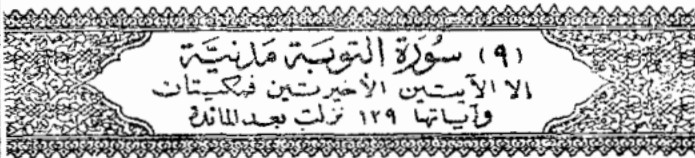 (٩) سُورَة التوبَة مَدنيَّة
إلا الآيستين الأخيرتين فمكيتان
وآياتها ١٢٩ نزلت بعد المائدة